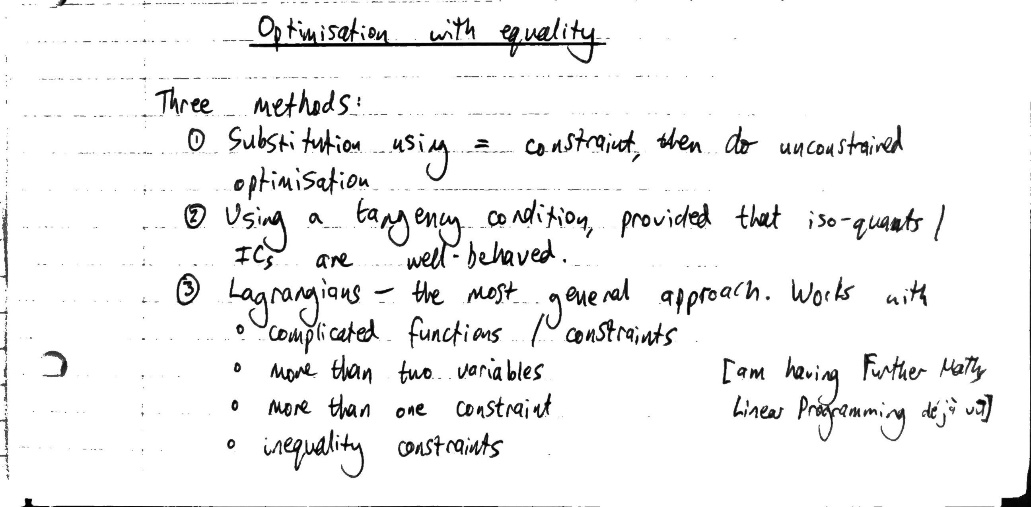 Optimisation with equality
Three methods:
① Substitution using = constraint, then do unconstrained
optimisation
② Using a tangency condition, provided that iso-quants /
ICs are well-behaved.
③ Lagrangians – the most general approach. Works with
◦ complicated functions / constraints
◦ more than two variables
◦ more than one constraint
◦ inequality constraints
[am having Further Maths
Linear Programming déjà vu]